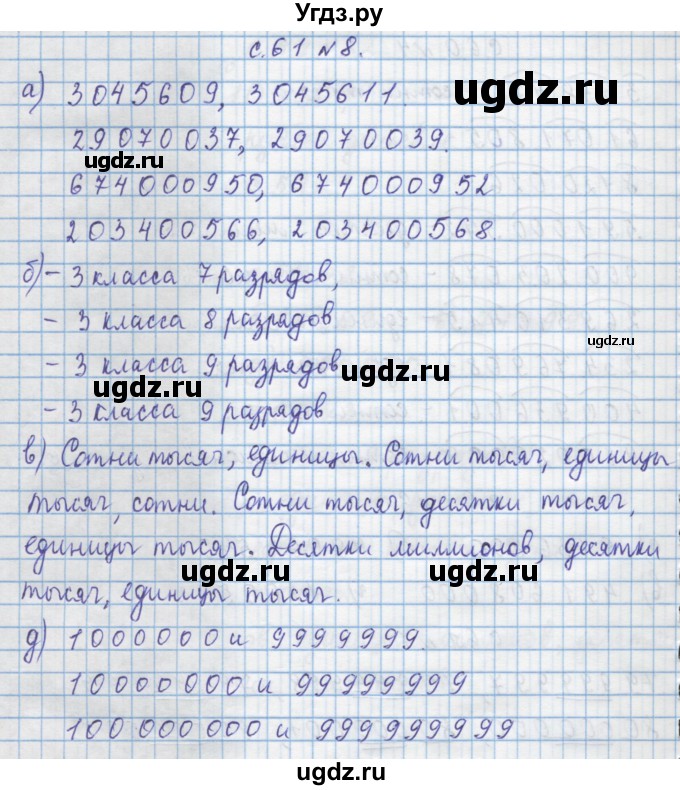 Угдз.ру
с.61 №8.
а) 3045609, 3045611.
ugdz.ru
29070037, 29070039.
ugdz.ru
674000950, 674000952
203400566, 203400568.
б) - 3 класса 7 разрядов,
- 3 класса 8 разрядов
ugdz.ru
- 3 класса 9 разрядов
ugdz.ru
ugdz.ru
- 3 класса 9 разрядов
в) Сотни тысяч, единицы. Сотни тысяч, единицы
тысяч, сотни. Сотни тысяч, десятки тысяч,
единицы тысяч. Десятки миллионов, десятки
ugdz.ru
ugdz.ru
тысяч, единицы тысяч.
д) 1000000 и 9999999.
ugdz.ru
10000000 и 99999999
100000000 и 999999999
ugdz.ru
ugdz.ru